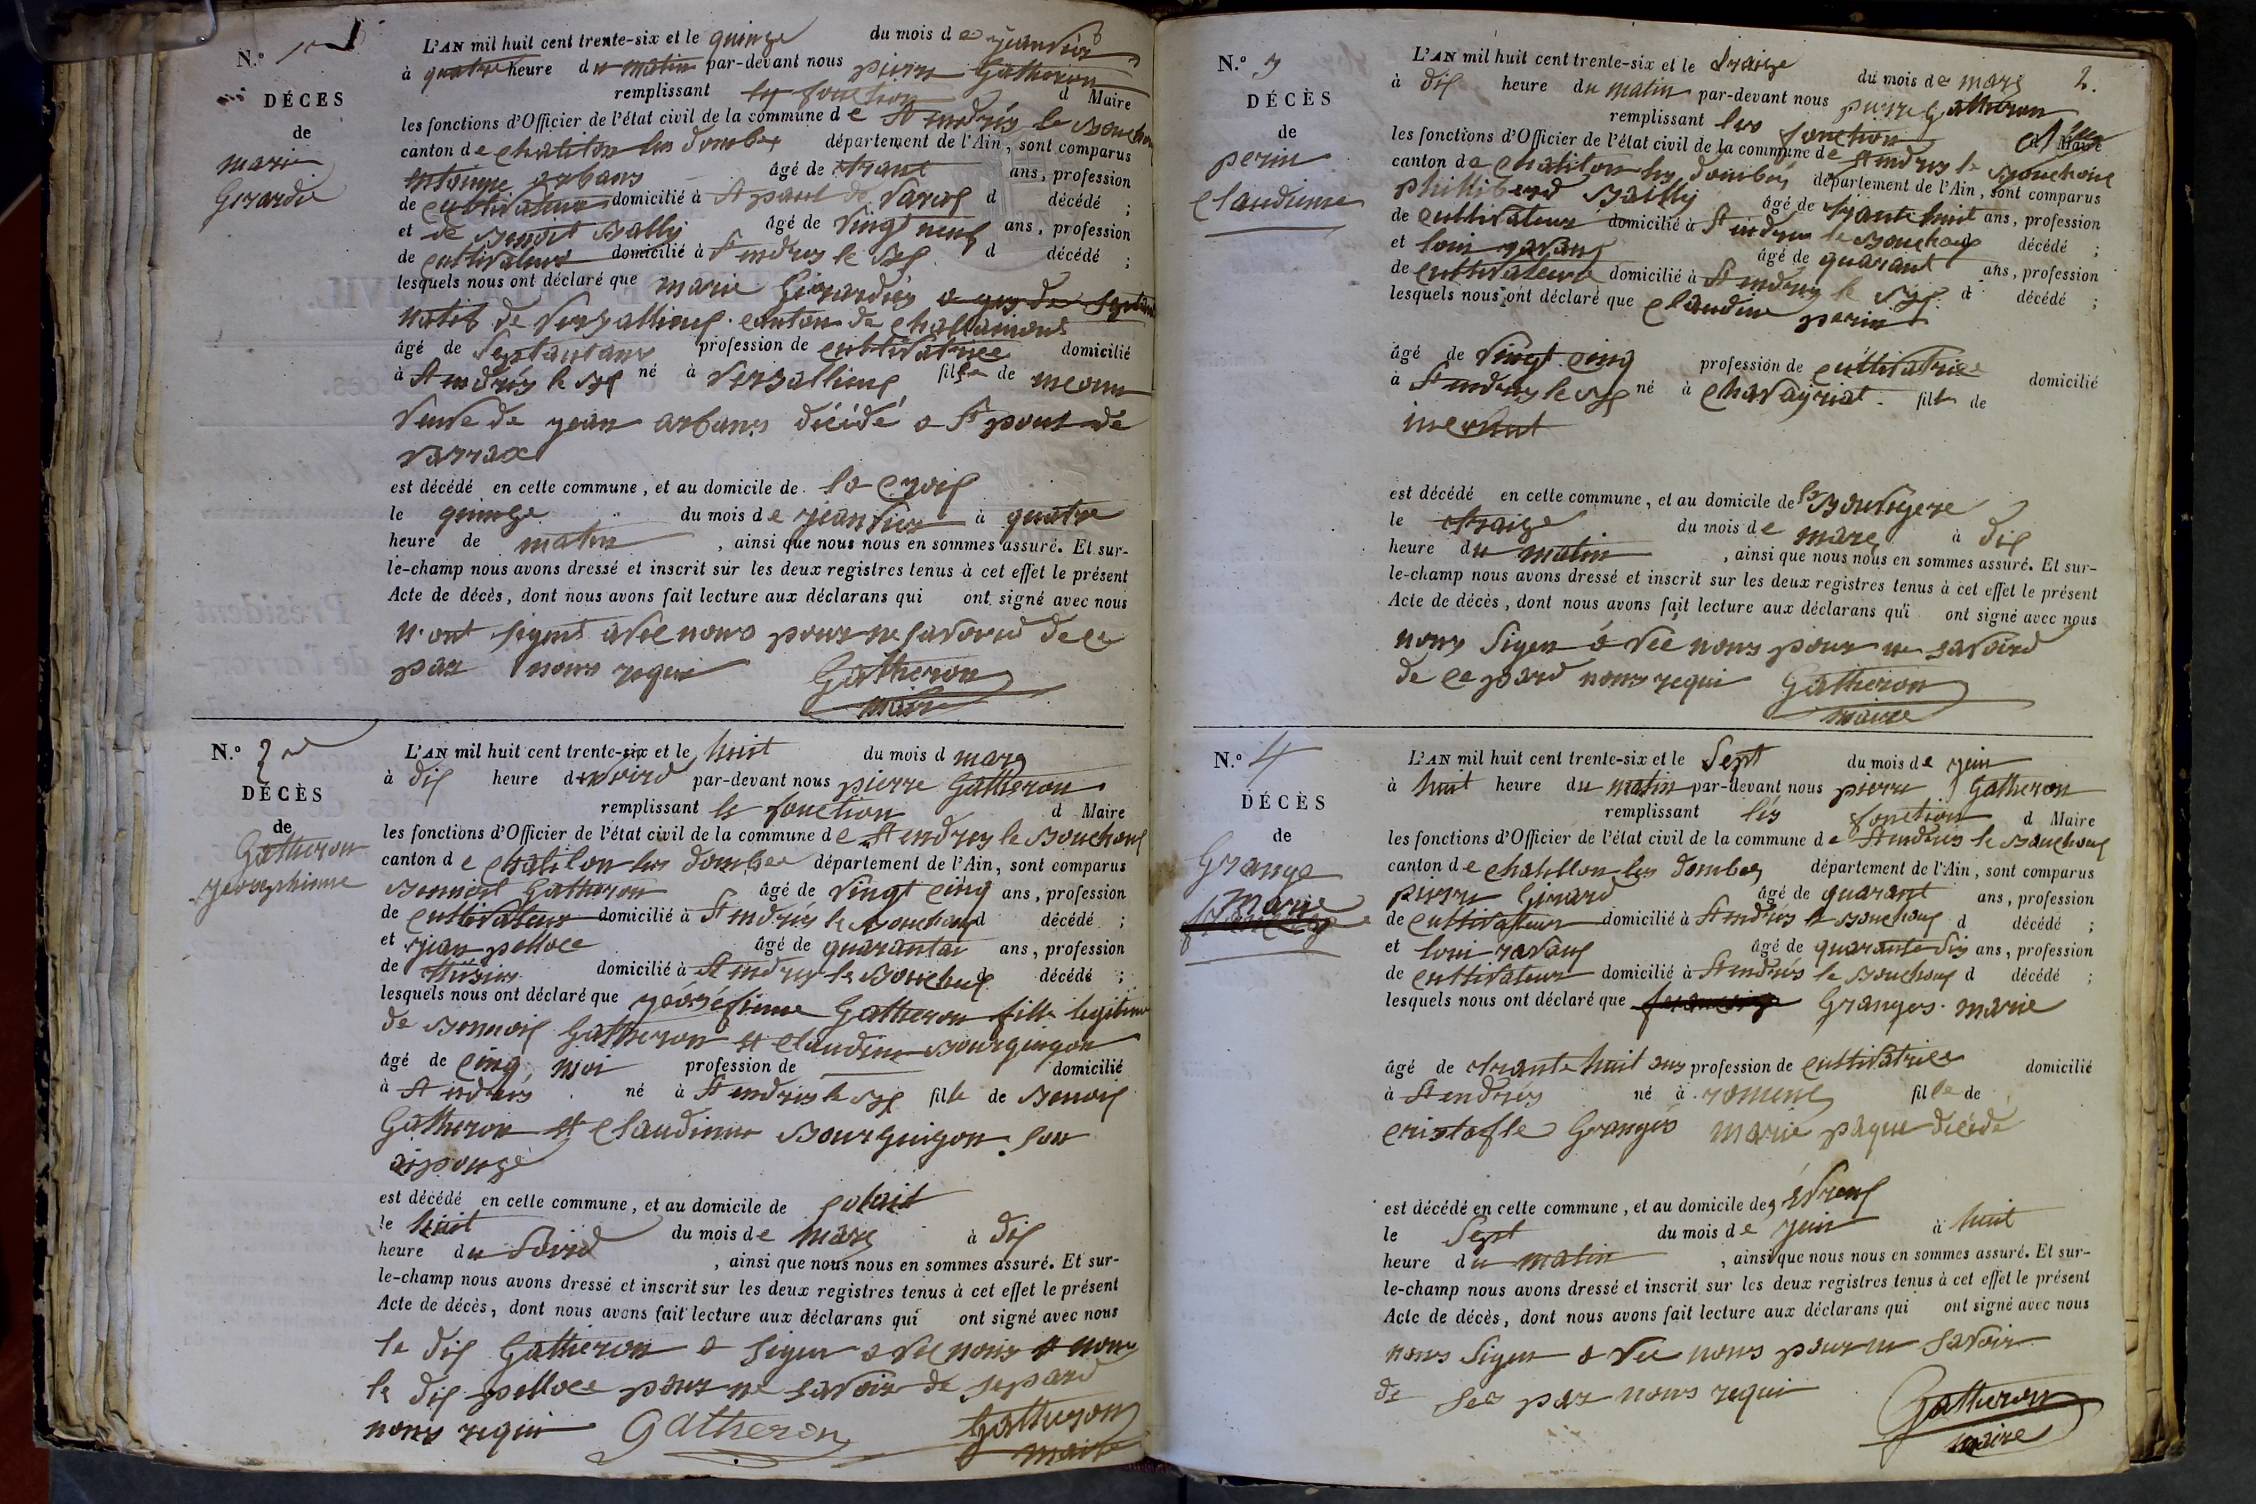 N.º 1er
DÉCES
de
marie
Girardie
L'AN mil huit cent trente-six et le quinze du mois de jeanvier
à quatre heure du matin par-devant nous pierre Gatheron
remplissant les fonction d Maire
les fonctions d'Officier de l'état civil de la commune de St endrés le Bouchou
canton de chatilon les dombes département de l'Ain, sont comparus
antoinne arbans âgé de trant ans, profession
de cultivateur domicilié à St paul de varax d décédé ;
et de Benoit Bally âgé de vingt neuf ans, profession
de cultivateur domicilié à St endres le Bx d décédé ;
lesquels nous ont déclaré que marie Girardiés
natif de Versallieux canton de challamont
âgé de septantans profession de cultivatrice domicilié
à St endrés le Bx né à Versallieux fille de meconu
veuve de jean arbans décédé a St poul de
varrax
est décédé en cette commune, et au domicile de la croix
le quinze du mois de jeanvier à quatre
heure de matin, ainsi que nous nous en sommes assuré. Et sur-
le-champ nous avons dressé et inscrit sur les deux registres tenus à cet effet le présent
Acte de décès, dont nous avons fait lecture aux déclarans qui ont signé avec nous
n'ont signé avec nous pour ne savoird de ce
par nous requi Gatheron
maire
N.º 2
DÉCÈS
de
Gatheron
jeosephinne
L'AN mil huit cent trente-six et le huit du mois d mars
à dix heure du soird par-devant nous pierre Gatheron
remplissant les fonction d Maire
les fonctions d'Officier de l'état civil de la commune de St endres le Bouchoux
canton de chatilon les dombes département de l'Ain, sont comparus
Bennoit Gatheron âgé de vingt cinq ans, profession
de cultivateur domicilié à St endrés le Bouchoux d décédé ;
et jean polloce âgé de quarantai ans, profession
de domicilié à St endres le Bouchoux décédé ;
lesquels nous ont déclaré que Gatheron fille legitime
de Bennoix Gatheron et claudine Bourguignon
âgé de cinq moi profession de domicilié
à St endrés né à St endres le Bx fille de Benoix
Gatheron et claudinne Bourguigon son
espouze
est décédé en cette commune, et au domicile de
le huit du mois de mars à dix
heure du soird, ainsi que nous nous en sommes assuré. Et sur-
le-champ nous avons dressé et inscrit sur les deux registres tenus à cet effet le présent
Acte de décès, dont nous avons fait lecture aux déclarans qui ont signé avec nous
le dix Gatheron a signer avec nous et nom
le dix polloce pour ne savoir de separd
nous requi Gatheron Gatheron
maire
N.º 3
DÉCÈS
de
perin
claudinne
2.
L'AN mil huit cent trente-six et le traize du mois de mars
à dix heure du matin par-devant nous pierre Gatheron
remplissant les fonction d Maire
les fonctions d'Officier de l'état civil de la commune de St endres le Bouchoux
canton de chatilon les dombes département de l'Ain, sont comparus
philliberd Bailly âgé de trante huit ans, profession
de cultivateur domicilié à St endres le Bouchoux décédé ;
et loui ravans âgé de quarant ans, profession
de cultivateur domicilié à St endres le Bx d décédé ;
lesquels nous ont déclaré que claudine perin
âgé de vingt cinq profession de cultivatrice domicilié
à St endres le Bx né à chavayriat fille de
est décédé en cette commune, et au domicile de la Bouvigere
le traize du mois de mars à dix
heure du matin, ainsi que nous nous en sommes assuré. Et sur-
le-champ nous avons dressé et inscrit sur les deux registres tenus à cet effet le présent
Acte de décès, dont nous avons fait lecture aux déclarans qui ont signé avec nous
nons signer a vec nous pour ne savoird
de ce pard nous requi Gatheron
maire
N.º 4
DÉCÈS
de
Grange
marie
L'AN mil huit cent trente-six et le sept du mois de juin
à huit heure du matin par-devant nous pierre Gatheron
remplissant lés fonction d Maire
les fonctions d'Officier de l'état civil de la commune de St endrés le Bouchoux
canton de chatillon les dombes département de l'Ain, sont comparus
pierre Girard âgé de quarant ans, profession
de cultivateur domicilié à St endrés le Bouchoux d décédé ;
et loui ravans âgé de quarante six ans, profession
de cultivateur domicilié à St endrés le Bouchoux d décédé ;
lesquels nous ont déclaré que Granges marie
âgé de trante huit ans profession de cultivatrice domicilié
à St endrés né à romene fille de
cristofle Grangés marie paque décédé
est décédé en cette commune, et au domicile de
le sept du mois de juin à huit
heure du matin, ainsi que nous nous en sommes assuré. Et sur-
le-champ nous avons dressé et inscrit sur les deux registres tenus à cet effet le présent
Acte de décès, dont nous avons fait lecture aux déclarans qui ont signé avec nous
nons signer a vec nous pour ne savoir
de ses par nous requi
Gatheron
maire